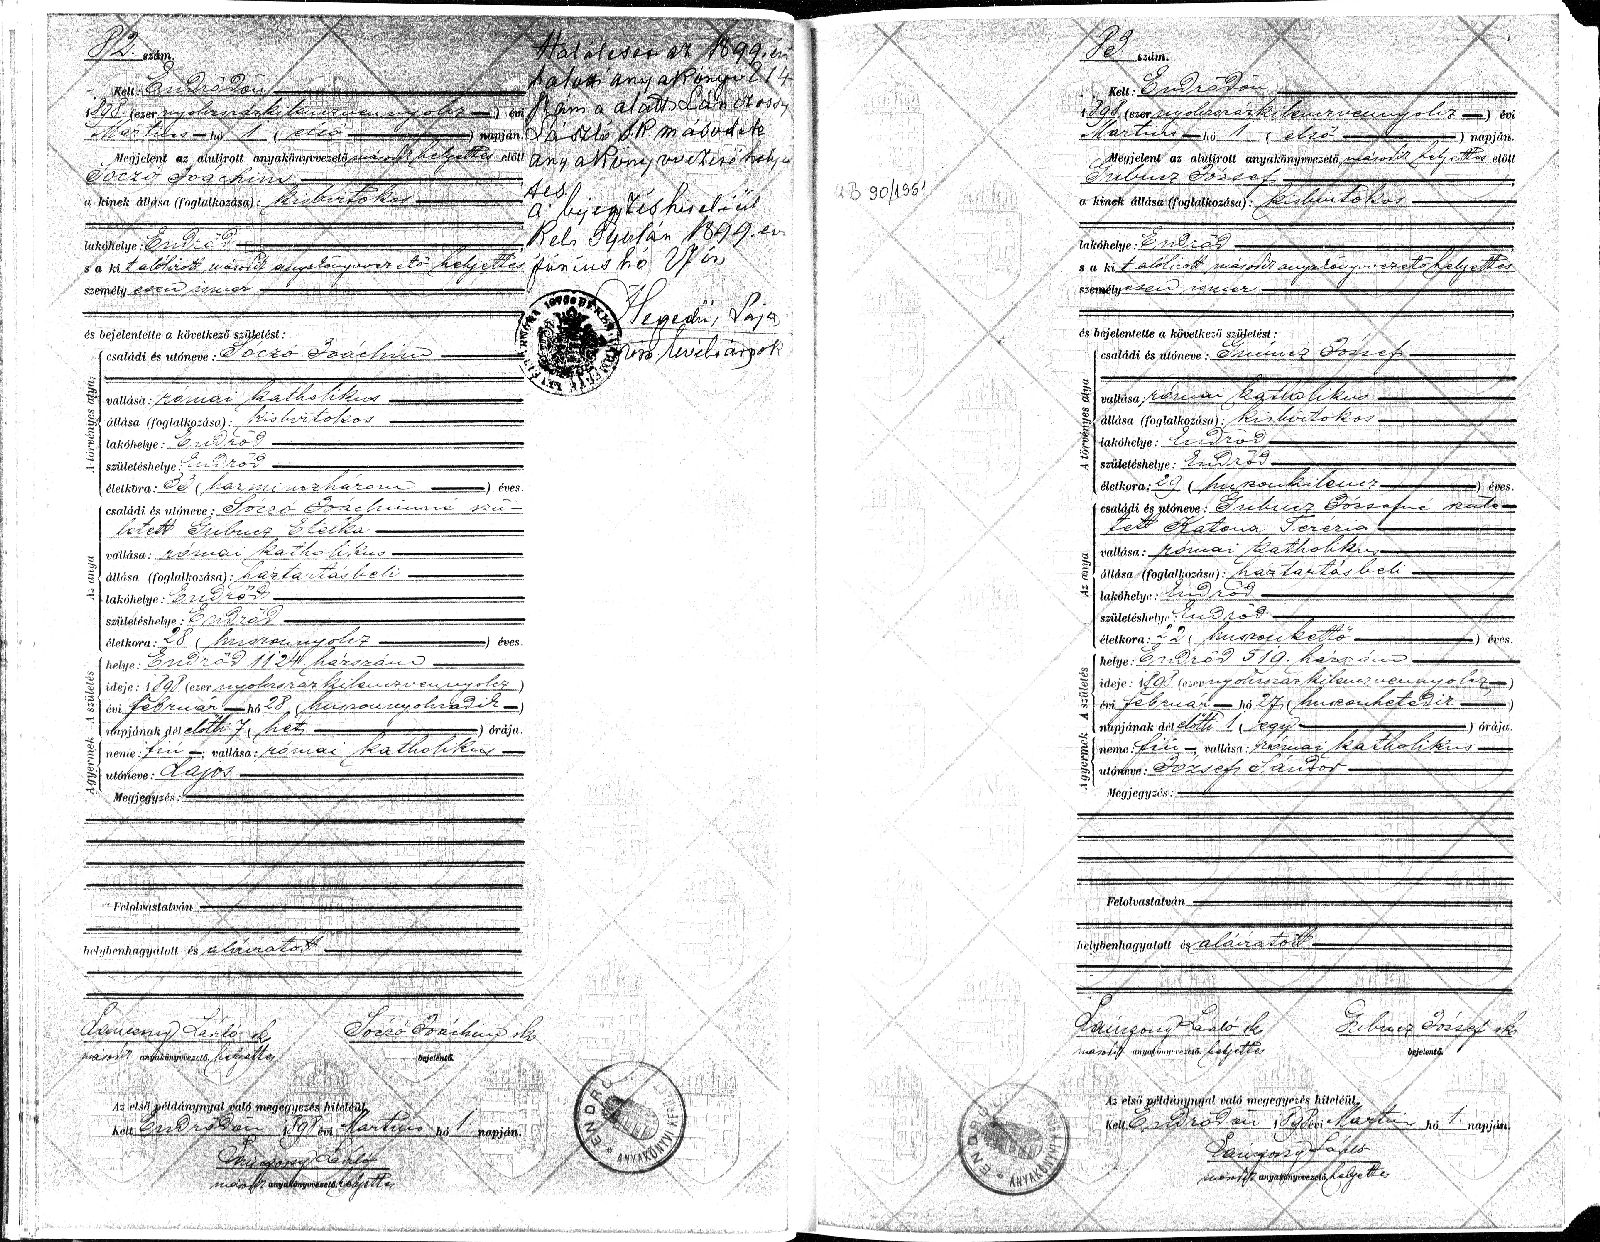 82. szám.
Kelt: Endrődön
1898 (ezer nyolczszázkilenczvennyolcz) évi
Martius hó 1 (első) napján.
Megjelent az alulirott anyakönyvvezető másod helyettes előtt
Soczó Joáchim
a kinek állása (foglalkozása): kisbirtokos
lakóhelye: Endrőd
s a ki t alólirott másod anyakönyvvezető helyettes
személy esen ismer
és bejelentette a következő születést:
A törvényes atya
családi és utóneve: Soczó Joáchim
vallása: római katholikus
állása (foglalkozása): kisbirtokos
lakóhelye: Endrőd
születéshelye: Endrőd
életkora: 33 (harminczhárom) éves.
Az anya
családi és utóneve: Soczó Joáchimné szü-
letett Gubucz Etelka
vallása: római katholikus
állása (foglalkozása): háztartásbeli
lakóhelye: Endrőd
születéshelye: Endrőd
életkora: 28 (huszonnyolcz) éves.
A születés
helye: Endrőd 1124 házszám
ideje: 1898 (ezer nyolczszázkilenczvennyolcz)
évi február hó 28 (huszonnyolczadik)
napjának dél előtti 7 (hét) órája.
A gyermek
neme: fiú, vallása: római katholikus
utóneve: Lajos
Megjegyzés:
Felolvastatván
helybenhagyatott és aláiratott
László sk
másod anyakönyvvezető. helyettes
Soczó Joáchim sk
bejelentő.
Az első példánynyal való megegyezés hiteléül
Kelt Endrődön 1898 évi Martius hó 1 napján.
László
másod anyakönyvvezető. helyettes
ENDRŐD
ANYAKÖNYVI KER.
Halálesete az 1899. évi
halotti anyakönyvi 214
szám alatt
László s.k. második
anyakönyvvezető helyet
tes
A bejegyzés hiteléül
Kelt Gyulán 1899. évi
június hó
Hegedüs Lajos
levéltárnok
AB 90/1951
83 szám.
Kelt: Endrődön
1898 (ezer nyolczszázkilenczvennyolcz) évi
Martius hó 1 (első) napján.
Megjelent az alulirott anyakönyvvezető másod helyettes előtt
Gubucz József
a kinek állása (foglalkozása): kisbirtokos
lakóhelye: Endrőd
s a ki t alólirott másod anyakönyvvezető helyettes
személy esen ismer
és bejelentette a következő születést:
A törvényes atya
családi és utóneve: Gubucz József
vallása: római katholikus
állása (foglalkozása): kisbirtokos
lakóhelye: Endrőd
születéshelye: Endrőd
életkora: 29 (huszonkilencz) éves.
Az anya
családi és utóneve: Gubucz Józsefné szüle-
tett Katona Terézia
vallása: római katholikus
állása (foglalkozása): háztartásbeli
lakóhelye: Endrőd
születéshelye: Endrőd
életkora: 22 (huszonkettő) éves.
A születés
helye: Endrőd 519. házszám
ideje: 1898 (ezer nyolczszázkilenczvennyolcz)
évi február hó 27 (huszonhetedik)
napjának dél előtti 1 (egy) órája.
A gyermek
neme: fiú, vallása: római katholikus
utóneve: József Sándor
Megjegyzés:
Felolvastatván
helybenhagyatott és aláiratott
László sk
másod anyakönyvvezető. helyettes
Gubucz József sk
bejelentő.
Az első példánynyal való megegyezés hiteléül
Kelt Endrődön 1898 évi Martius hó 1 napján.
László
másod anyakönyvvezető. helyettes
ENDRŐD
ANYAKÖNYVI